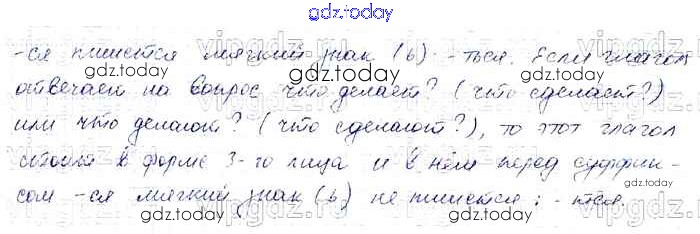 gdz.today
-ся пишется мягкий знак (ь) - ться. Если глагол
gdz.today gdz.today
отвечает на вопрос что делает? (что сделает?)
или что делают? (что сделают?), то этот глагол
gdz.today gdz.today
стоит в форме 3-го лица и в нём перед суффик-
сом -ся мягкий знак (ь) не пишется: - тся.
gdz.today gdz.today